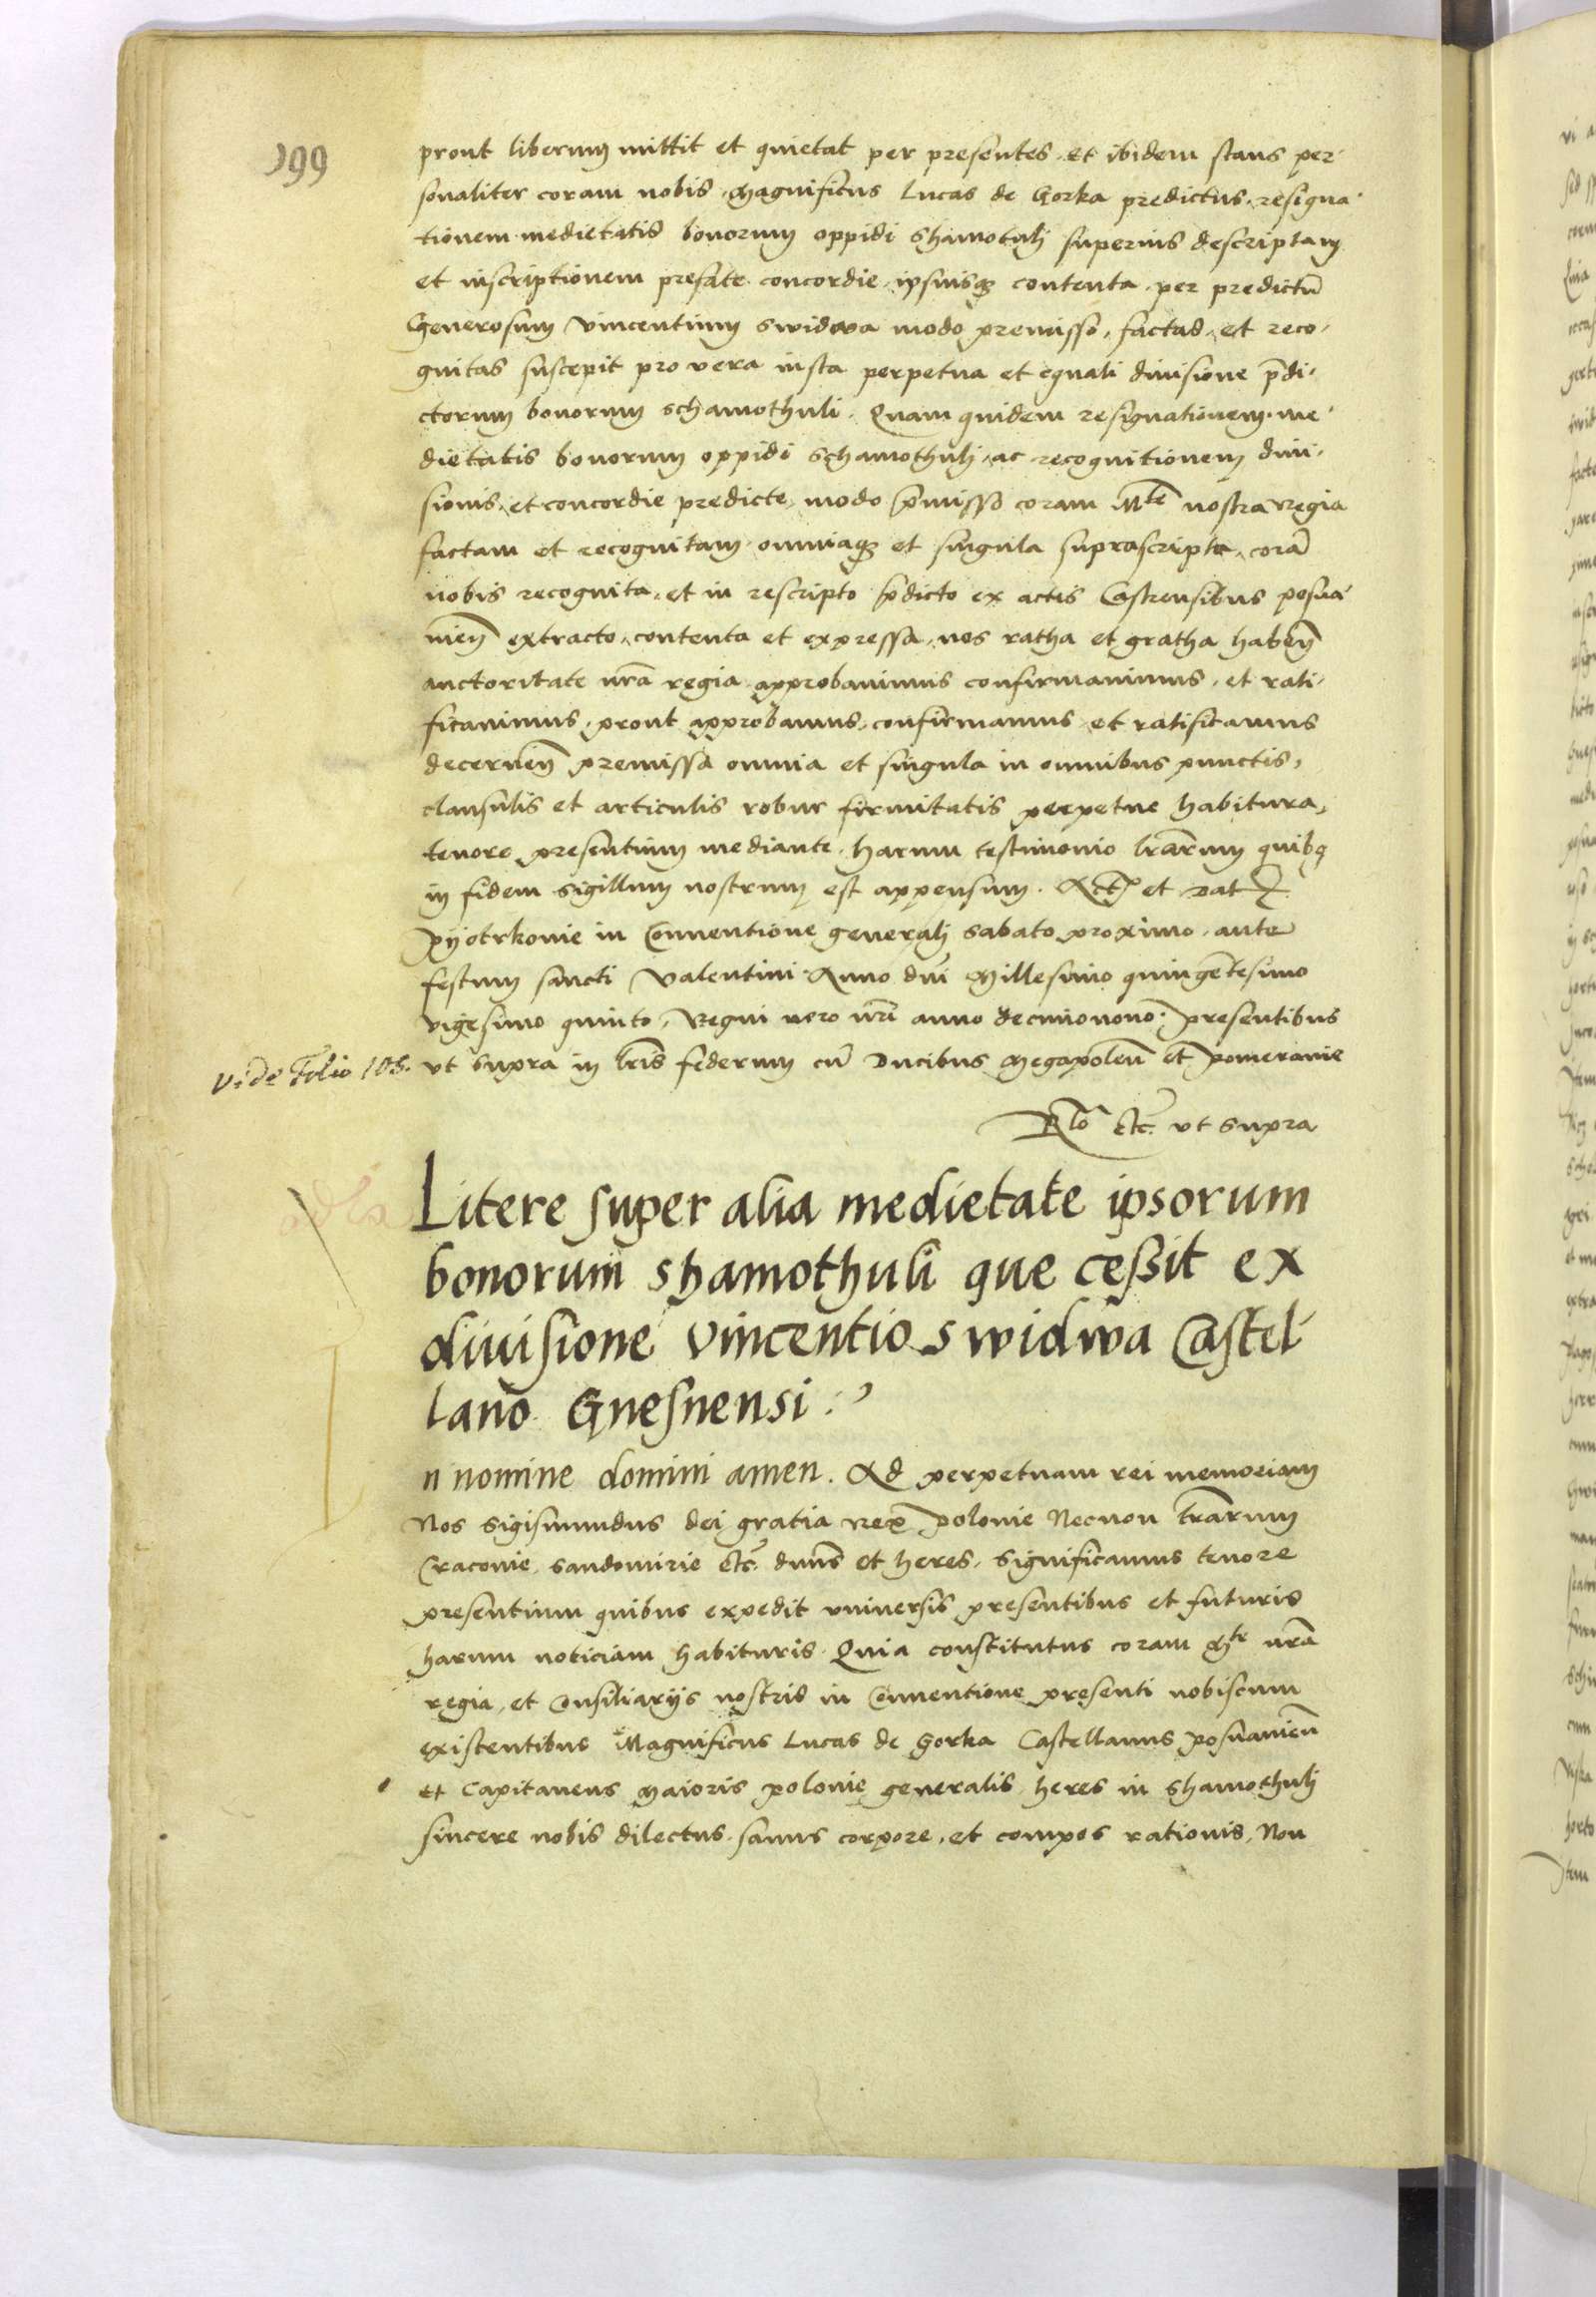 199
prout liberum mittit et quietat per presentes. et ibidem stans per-
sonaliter coram nobis. Magnificus Lucas de Gorka predictus. resigna-
tionem medietatis bonorum oppidi Shamotulj superius descriptam
et inscriptionem prefate concordie. ipsiusq3 contenta per predictū
Generosum Vincentium Swidwa modo premisso, factas. et reco-
gnitas suscepit pro vera iusta perpetua et equali diuisione p̄di-
ctorum bonorum Schamothuli. Quam quidem resignationem me-
dietatis bonorum oppidi Schamothulj, ac recognitionem diui-
sionis, et concordie predicte, modo p̄misso coram Mte nostra Regia
factam et recognitam omniaq3 et singula suprascripta, corā
nobis recognita, et in rescripto p̄dicto ex actis Castrensibus posna-
nien̄ extracto, contenta et expressa, nos ratha et gratha haben̄
auctoritate nrā regia approbauimus confirmauimus, et rati-
ficauimus, prout approbamus, confirmamus et ratificamus
decernen̄ premissa omnia et singula in omnibus punctis,
clausulis et articulis robur firmitatis perpetue habitura,
tenore presentium mediante. harum testimonio lrārum quibq
in fidem sigillum nostrum est appensum. Act et Dat
Pyotrkouie in Conuentione generalj Sabato proximo ante
festum sancti Valentini Anno dnī Millesimo quingētesimo
vigesimo quinto, Regni vero nrī anno decimonono. presentibus
vt supra in lrīs federum cū Ducibus Megapoleñ et Pomeranie
Vide Folio 105.
Rlō etc. vt supra
Litere super alia medietate ipsorum
bonorum Shamothuli que cessit ex
diuisione Vincentio Swidwa Castel-
lano Gnesnensi
n nomine domini amen. Ad perpetuam rei memoriam
Nos Sigismundus dei gratia Rex Polonie Necnon trārum
Cracouie, Sandomirie etc. dnns et heres, Significamus tenore
presentium quibus expedit vniuersis presentibus et futuris
harum noticiam habituris. Quia constitutus coram Mte nrā
regia, et Consiliarijs nostris in Conuentione presenti nobiscum
existentibus Magnificus Lucas de Gorka Castellanus Posnanieñ
et Capitaneus Maioris Polonie generalis heres in Shamothulj
sincere nobis dilectus. sanus corpore, et compos rationis, Non